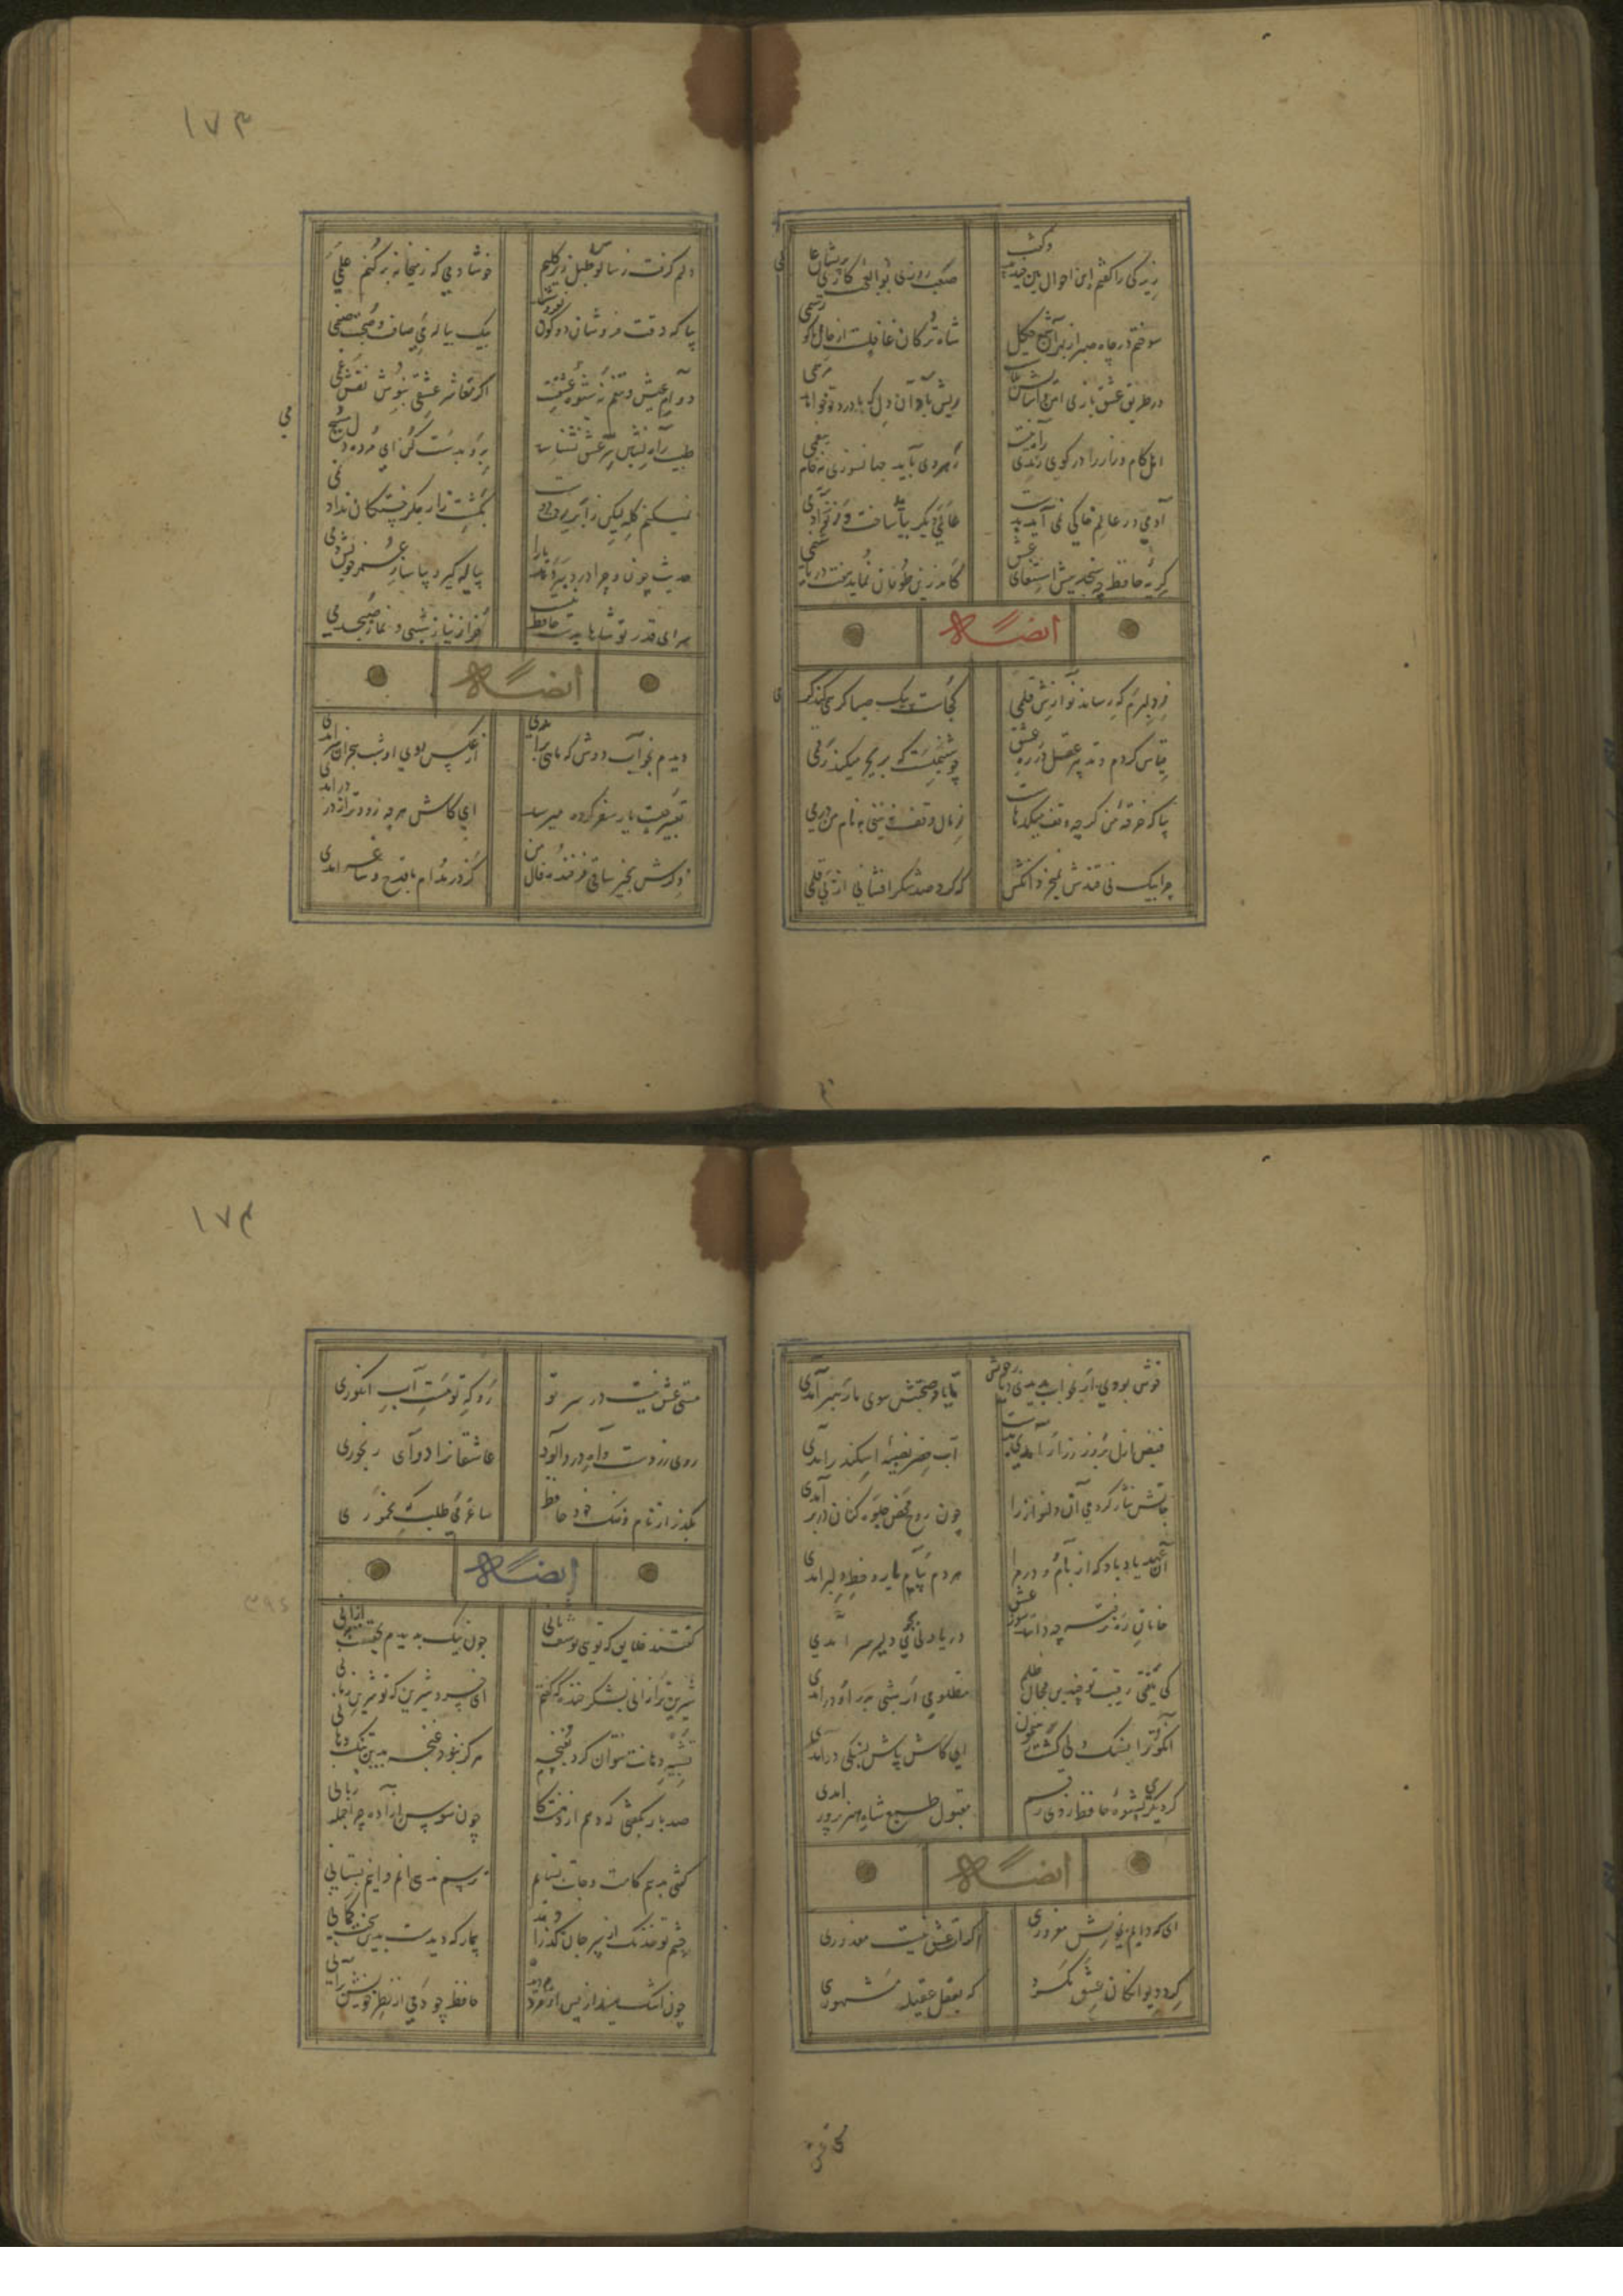 زیرکی را گفتم این احوال بین خندید و گفت صعب روزی بوالعجب کاری پریشان عالمی
سوختم در چاه صبر از بهر آن شمع چگل شاه ترکان غافلست از حال ما کو رستمی
در طریق عشق بازی امن و آسایش بلاست ریش باد آن دل که با درد تو خواهد مرهمی
اهل کام و ناز را در کوی رندی راه نیست رهروی باید جهانسوزی نه خامی بیغمی
آدمی در عالم خاکی نمی آید بدست عالمی دیگر بباید ساخت وز نو آدمی
گریه حافظ چه سنجد پیش استغنای عشق کاندرین طوفان نماید هفت دریا شبنمی
ایضاً له
ز دلبرم که رساند نوازش قلمی کجاست پیک صبا گر همی کند کرمی
قیاس کردم و تدبیر عقل در ره عشق چو شبنمیست که بر بحر میکشد رقمی
بیا که خرقه من گرچه وقف میکدهاست ز مال وقف نبینی به نام من درمی
چرا بیک نی قندش نمیخرند آنکس که کرد صد شکر افشانی از نی قلمی
۱۷۳
دلم گرفت ز سالوس و طبل زیر گلیم خوشا دمی که ز میخانه برکنم علمی
بیا که وقت فروشان دو کون بفروشند بیک پیاله می صاف و صحبت صنمی
دوام عیش و تنعم نه شیوه عشقست اگر معاشر عشقی بنوش نیش غمی
طبیب راه نشین سر عشق نشناسد برو بدست کن ای مرده دل مسیح دمی
نمیکنم گله لیکن ز ابر رحمت دوست بکشت زار جگر خستگان نداد نمی
حدیث چون و چرا درد سر دهد یارا پیاله گیر و بیاساز عمر خویش دمی
سزای قدر تو شاها بدست حافظ نیست جز از نیاز شبی و نماز صبحدمی
ایضاً له
دیدم بخواب دوش که ماهی برآمدی از عکس روی او شب هجران سرآمدی
تعبیر چیست یار سفر کرده میرسد ای کاش هر چه زودتر از در درآمدی
ذکرش بخیر ساقی فرخنده فال من کز در مدام با قدح و ساغر آمدی
خوش بودی ار بخواب بدیدی دیار خویش تا یاد صحبتش سوی ما رهبر آمدی
فیض ازل بزور و زر ار آمدی بدست آب خضر نصیبه اسکندر آمدی
جانش نثار کردمی آن دلنواز را چون روح محض جلوه کنان در بر آمدی
آن عهد یاد باد که از بام و در مرا هر دم پیام یار و خط دلبر آمدی
خامان ره نرفته چه دانند سوز عشق دریا دلی بجوی دلیر سرآمدی
کی یافتی رقیب تو چندین مجال ظلم مظلومی ار شبی بدر او درآمدی
آنکو ترا بسنگدلی گشت رهنمون ای کاش پاش بسنگی درآمدی
گر دیگری بشیوه حافظ زدی رقم مقبول طبع شاه هنر پرور آمدی
ایضاً له
ای که دایم بخویش مغروری اگر از عشق نیست معذوری
گرد دیوانگان عشق مگرد که بعقل عقیله مشهوری
۱۷۴
مستی عشق نیست در سر تو رو که تو مست آب انگوری
روی زردست و آه درد آلود عاشقانرا دوای رنجوری
بگذر از نام و ننگ خود حافظ ساغر می طلب که مخموری
ایضاً له
گفتند خلایق که توی یوسف ثانی چون نیک بدیدم بحقیقت به از آنی
شیرین تر از آنی بشکر خنده که گفتم ای خسرو شیرین که تو شیرین زمانی
تشبیه دهانت نتوان کرد بغنچه هرگز نبود غنچه بدین تنگ دهانی
صد بار بگفتی که دهم از دهنت کام چون سوسن آزاده چرا جمله زبانی
گفتی بدهم کامت و جانت بستانم ترسم ندهی کامم و جانم بستانی
چشم تو خدنگ از سپر جان گذراند بیمار که دیدست بدین سخت کمانی
چون اشک بیندازیش از دیده مردم حافظ چو دمی از نظر خویش برانی